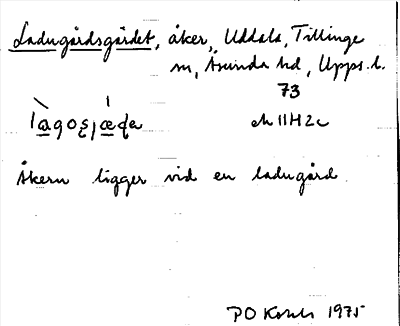 Ladugårdsgärdet, åker, Uddala, Tillinge
sn, Åsunda hd, Upps. l.
73
ek 11H2c
Åkern ligger vid en ladugård
PO 1975